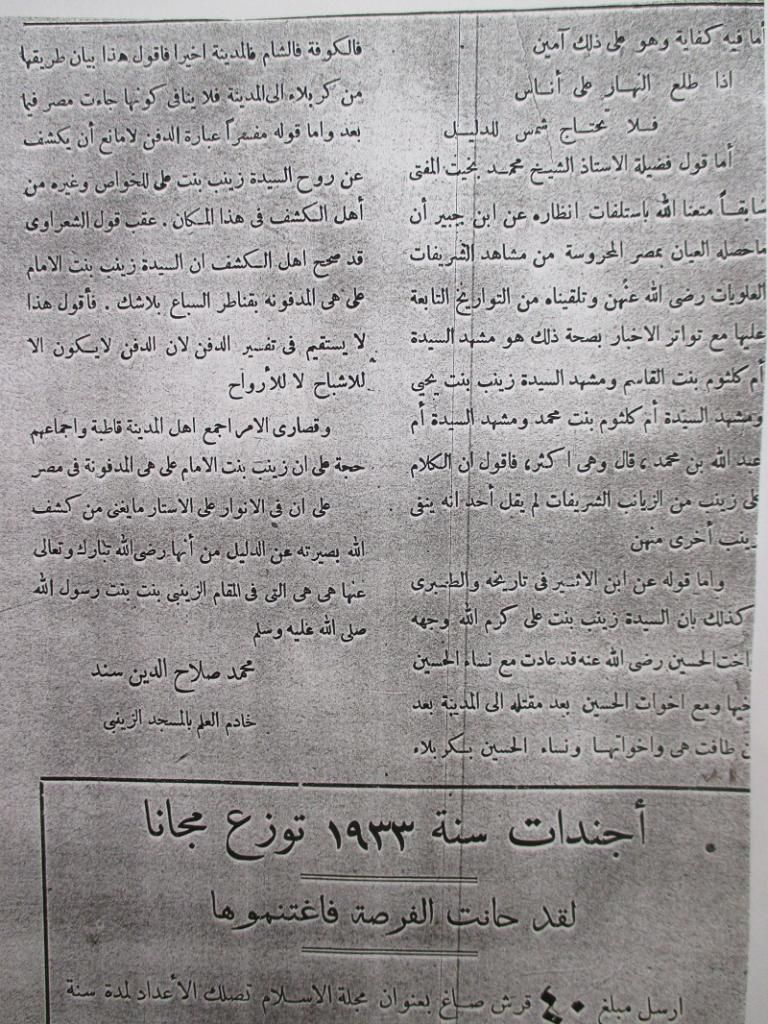 أما فيه كفاية وهو على ذلك آمين
اذا طلع النهار على أناس
فلا تحتاج شمس للدليل
أما قول فضيلة الاستاذ الشيخ محمد بخيت المفتي
سابقاً متعنا الله باستلفات انظاره عن ابن جبير أن
ماحصله العيان بمصر المحروسة من مشاهد الشريفات
العلويات رضى الله عنهن وتلقيناه من التواريخ التابعة
عليها مع تواتر الاخبار بصحة ذلك هو مشهد السيدة
أم كلثوم بنت القاسم ومشهد السيدة زينب بنت يحيى
ومشهد السيدة أم كلثوم بنت محمد ومشهد السيدة أم
عبد الله بن محمد، قال وهى اكثر، فاقول ان الكلام
على زينب من الزيانب الشريفات لم يقل أحد انه ينفى
زينب أخرى منهن
واما قوله عن ابن الاثير فى تاريخه والطبرى
كذلك بان السيدة زينب بنت على كرم الله وجهه
واخت الحسين رضى الله عنه قد عادت مع نساء الحسين
أخيها ومع اخوات الحسين بعد مقتله الى المدينة بعد
طافت هى واخواتها ونساء الحسين بكربلاء
فالكوفة فالشام فالمدينة اخيرا فاقول هذا بيان طريقها
من كربلاء الى المدينة فلا ينافى كونها جاءت مصر فيما
بعد واما قوله مفسراً عبارة الدفن لامانع أن يكشف
عن روح السيدة زينب بنت على للخواص وغيره من
أهل الكشف فى هذا المكان. عقب قول الشعراوى
قد صحح اهل الكشف ان السيدة زينب بنت الامام
على هى المدفونه بقناطر السباع بلاشك. فأقول هذا
لا يستقيم فى تفسير الدفن لان الدفن لايكون الا
للاشباح لا للأرواح
وقصارى الامر اجمع اهل المدينة قاطبة واجماعهم
حجة على ان زينب بنت الامام على هى المدفونة فى مصر
على ان فى الانوار على الاستار مايغنى من كشف
الله بصيرته عن الدليل من أنها رضى الله تبارك وتعالى
عنها هى هى التى فى المقام الزينبى بنت بنت رسول الله
صلى الله عليه وسلم
محمد صلاح الدين سند
خادم العلم بالمسجد الزينبى
أجندات سنة ١٩٣٣ توزع مجانا
لقد حانت الفرصة فاغتنموها
ارسل مبلغ ٤٠ قرش صاغ بعنوان مجلة الاسلام تصلك الأعداد لمدة سنة